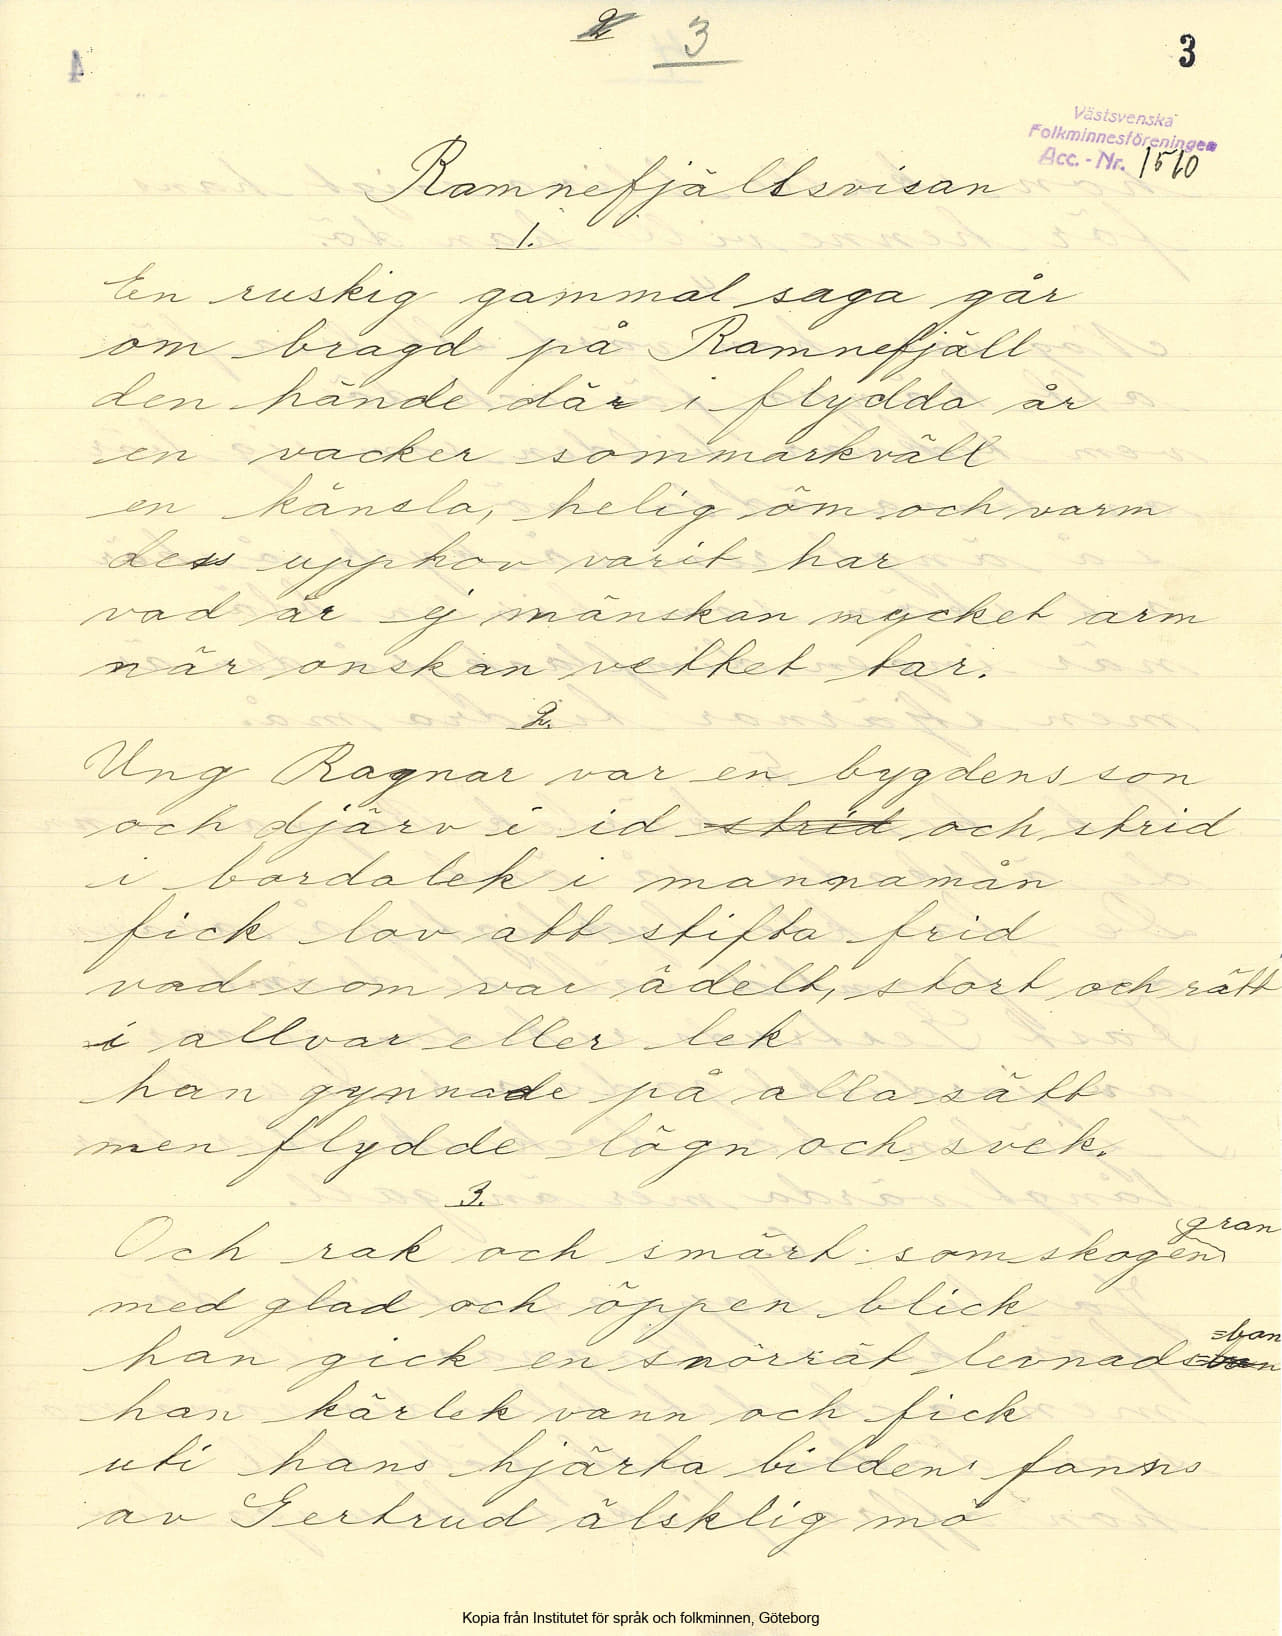 3
3
Västsvenska
Folkminnesföreningen
Acc.-Nr. 1510
Ramnefjällsvisan
1.
En ruskig gammal saga går
om bragd på Ramnefjäll
den hände där i flydda år
en vacker sommarkväll
en känsla, helig öm och varm
dess upphov varit har
vad är ej mänskan mycket arm
när onskan vettet tar.
2.
Ung Ragnar var en bygdens son
och djärv i id strid och strid
i bardalek i mannamån
fick lov att stifta frid
vad som var ädelt, stort och rätt
i allvar eller lek
han gynnade på alla sätt
men flydde lögn och svek.
3.
Och rak och smärt som skogen gran
med glad och öppen blick
han gick en snörrät levnads=ban
han kärlek vann och fick
uti hans hjärta bilden fanns
av Gertrud älsklig mö
Kopia från Institutet för språk och folkminnen, Göteborg